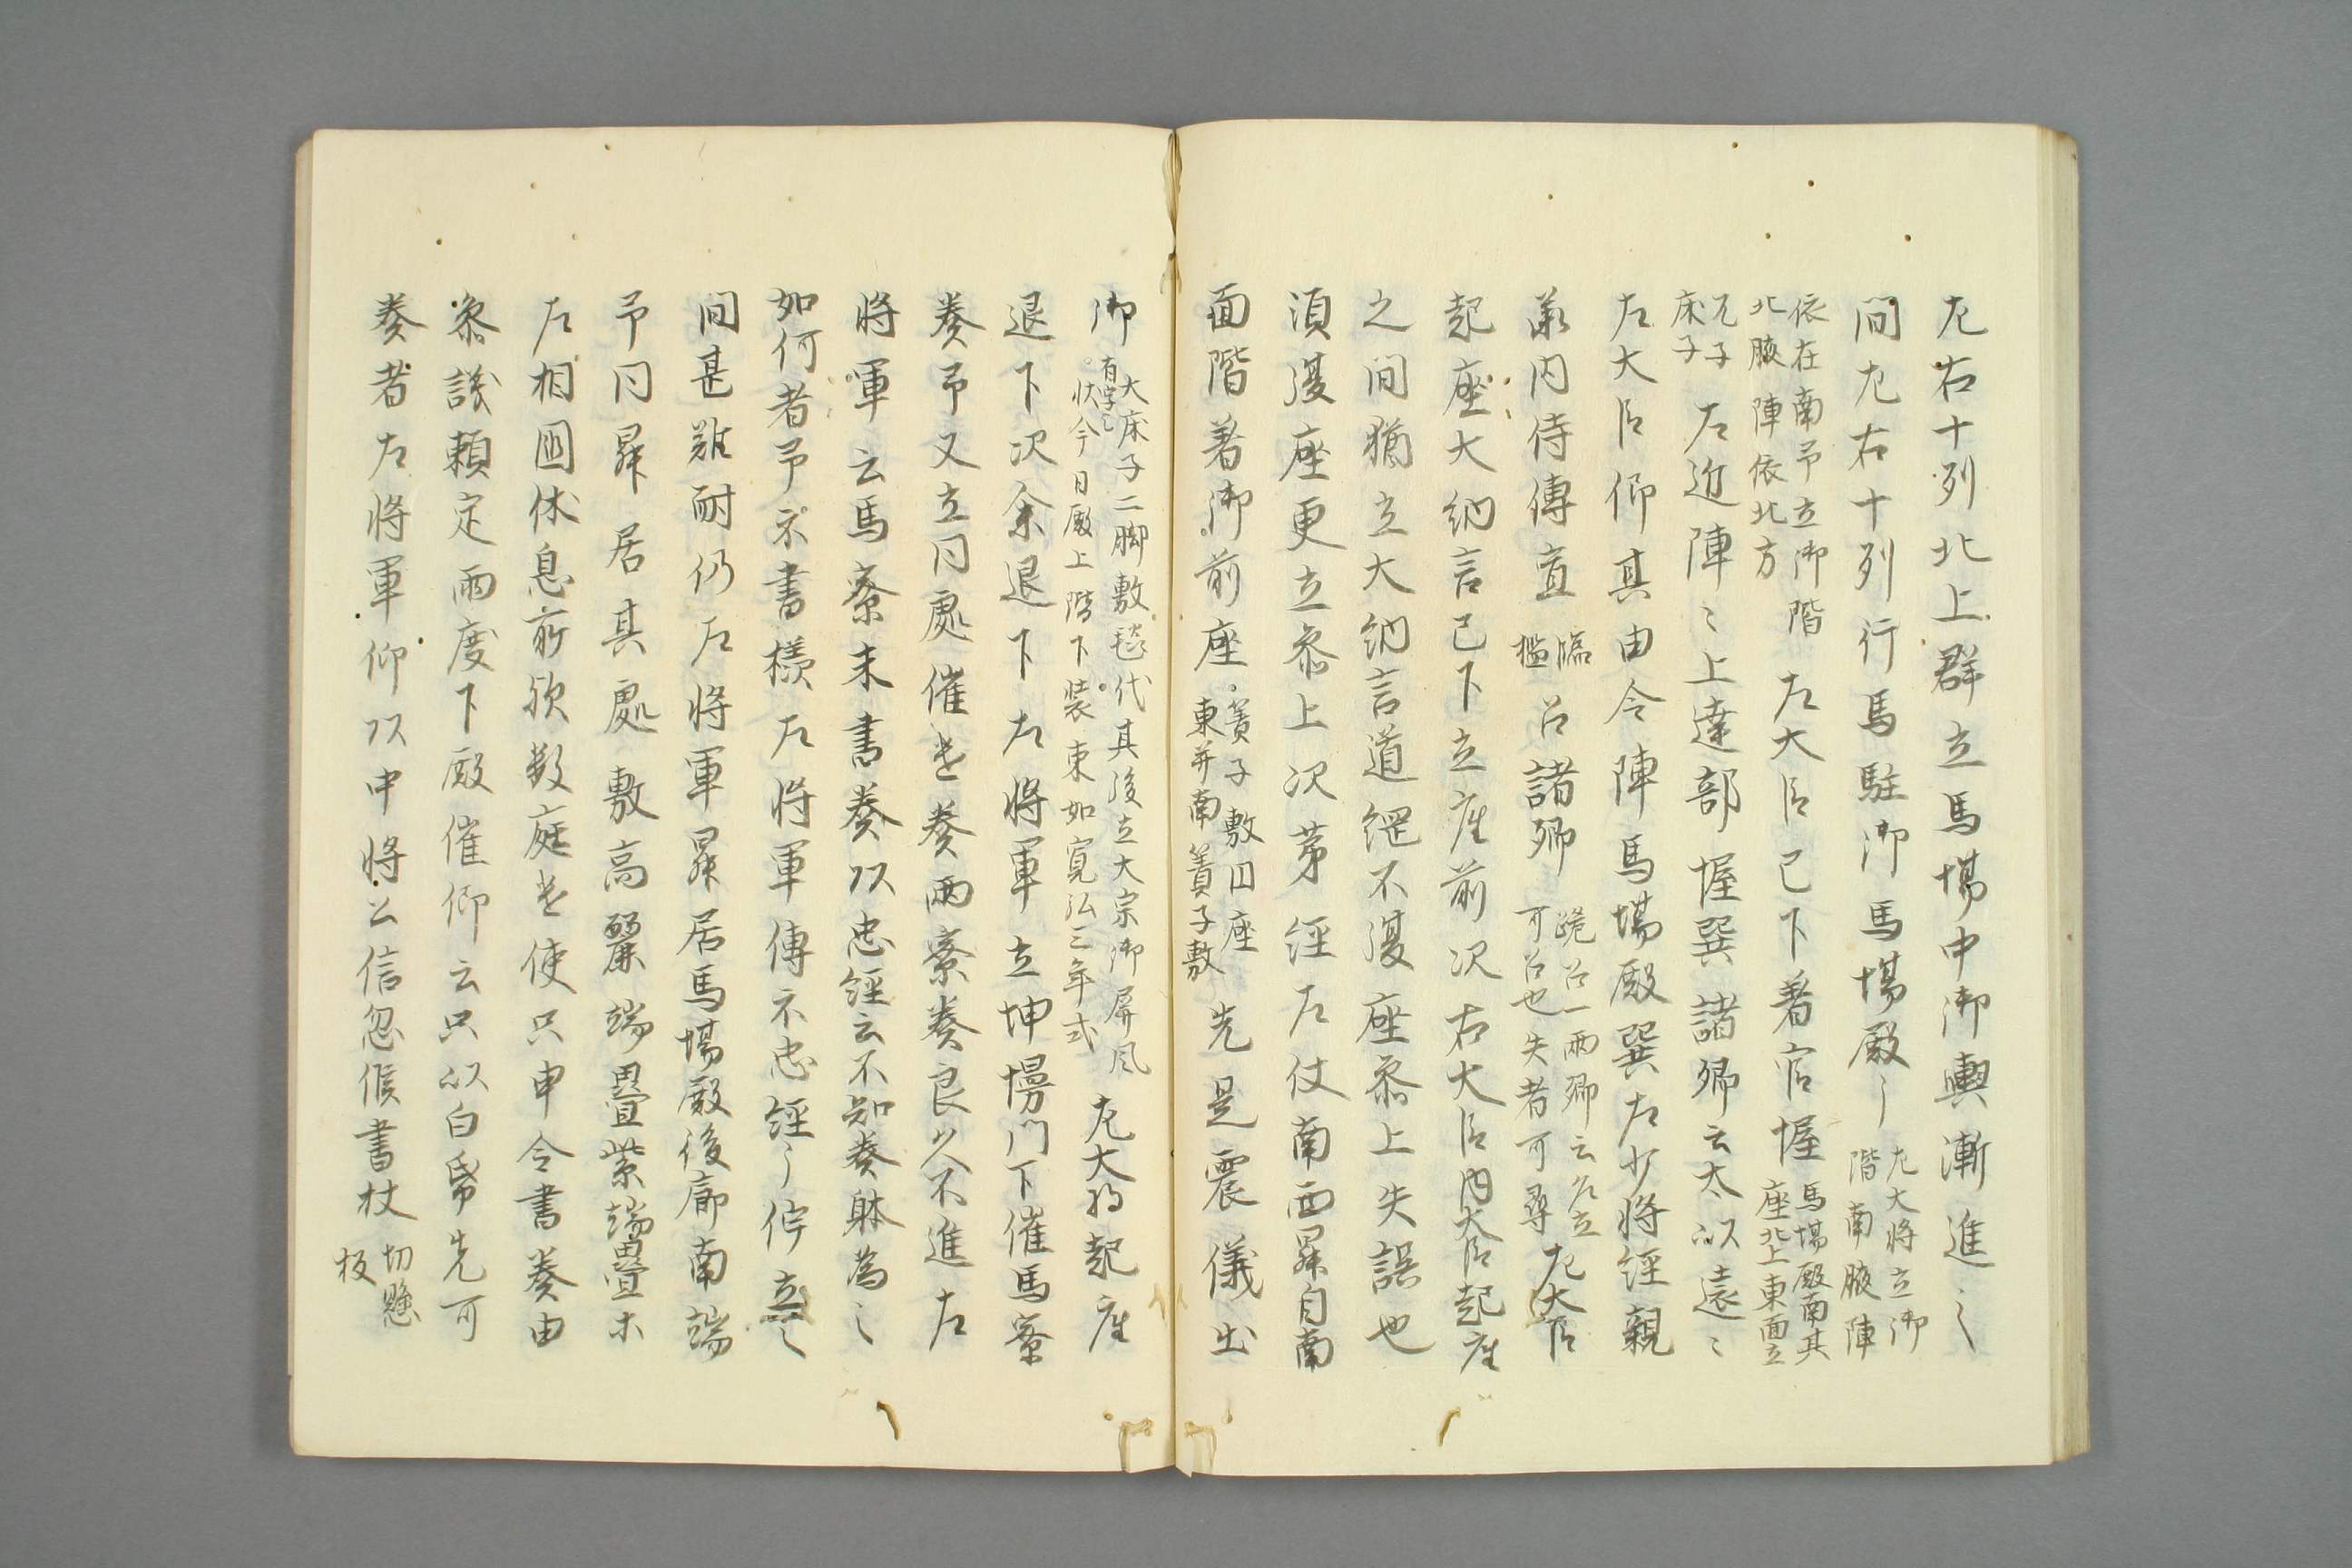 左右十列北上群立馬場中御輿漸進〻
間左右十列行馬駐御馬場殿〻左大将立御階南腋陣
依在南予立御階北腋陣依北方左大臣已下着官幄馬場殿南其座北上東面立
兀子床子左近陣〻上達部幄巽諸卿云太以遠〻
左大臣仰其由令陣馬場殿巽左少将経親
兼内侍傳宣臨檻召諸卿跪召一両卿云名立可召也失者可尋左大臣
起座大納言已下立座前次右大臣内大臣起座
之間猶立大納言道綱不復座参上失誤也
須復座更立参上次第経左仗南西昇自南
面階著御前座簀子敷円座東并南簀子敷先是震儀出
御大床子二脚敷毯代其後立大宗御屏風有字之状今日殿上階下装束如寛弘三年式左大将起座
退下次余退下左将軍立坤幔門下催馬寮
奏予又立同處催是奏両寮奏良久不進左
将軍云馬寮未書奏以忠経云不知奏躰為〻
如何者予示書様左将軍傳示忠経〻佇立〻
間甚難耐仍左将軍昇居馬場殿後廊南端
予同昇居其處敷高麗端畳紫端畳木
左相国休息所欤数庭是使只申令書奏由
参議頼定両度下殿催仰云只以白帋先可
奏者左将軍仰以中将公信忽候書杖切懸板